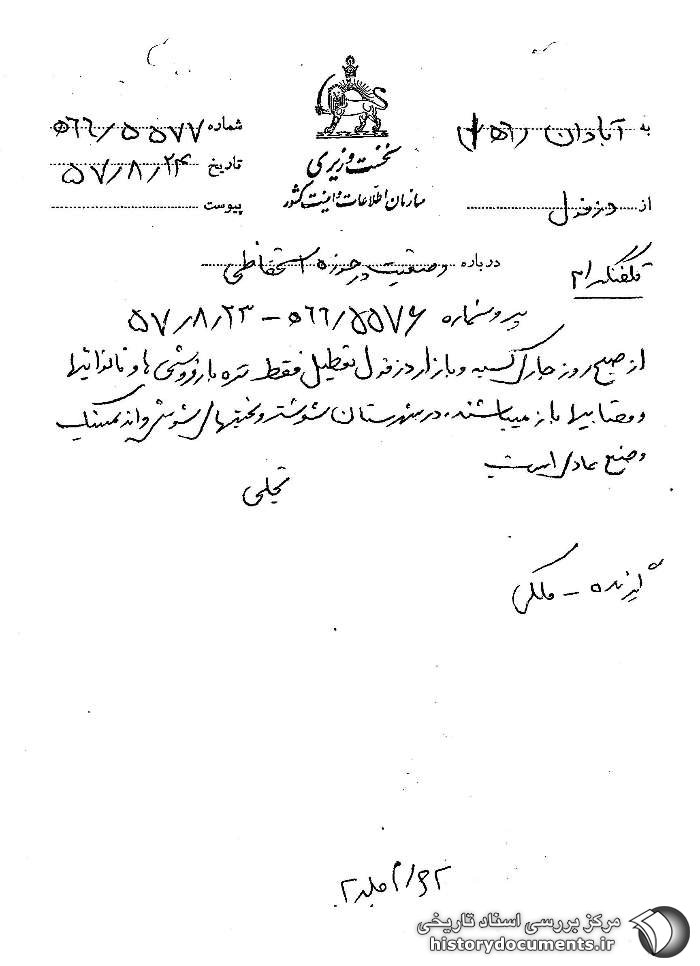 به آبادان
شماره ۵۶۶/۵۵۷۷
نخست وزیری
تاریخ ۵۷/۸/۲۴
سازمان اطلاعات و امنیت کشور
از دزفول
پیوست
تلفنگرام
درباره وضعیت در حوزه استحفاظی
پیرو شماره ۵۶۶/۵۵۷۶ - ۵۷/۸/۲۳
از صبح روز جاری کسبه و بازار دزفول تعطیل فقط تره بار فروشی ها و نانوائیها
و قصابیها باز میباشند. در شهرستان شوشتر و بخشهای شوش و اندیمشک
وضع عادی است
تجلی
گیرنده - ملکی
جلد ۲
مرکز بررسی اسناد تاریخی
historydocuments.ir